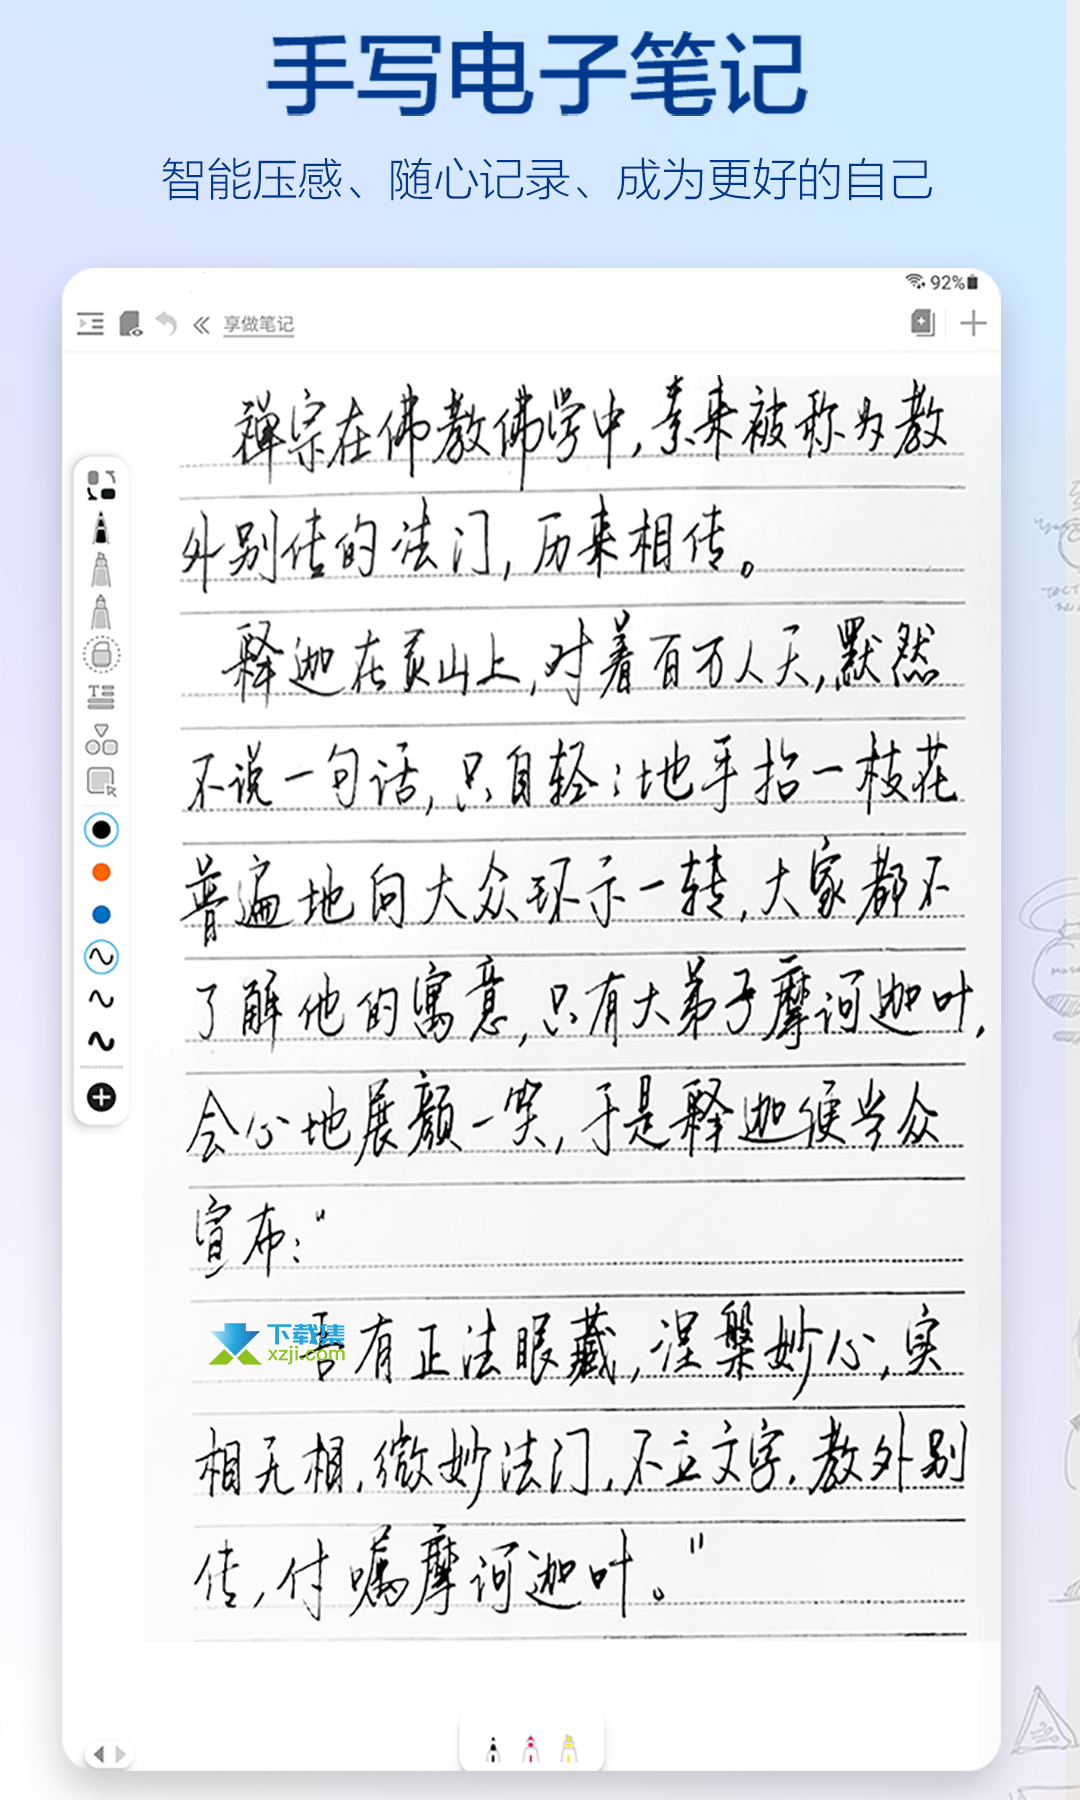 手写电子笔记
智能压感、随心记录、成为更好的自己
92%
享做笔记
禅宗在佛教佛学中,素来被称为教
外别传的法门,历来相传。
释迦在灵山上,对着百万人天,默然
不说一句话,只自轻;地手抬一枝花
普遍地向大众环示一转,大家都不
了解他的寓意,只有大弟子摩诃迦叶,
会心地展颜一笑,于是释迦便当众
宣布:"
吾有正法眼藏,涅槃妙心,实
下载集
xzji.com
相无相,微妙法门,不立文字.教外别
传,付嘱摩诃迦叶。"